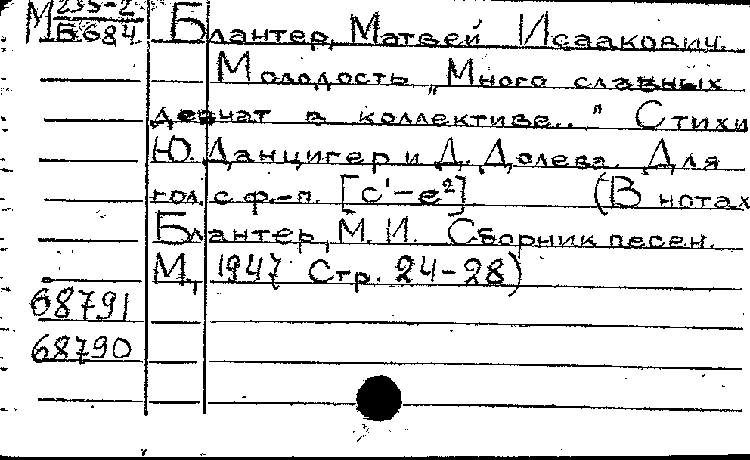 М 235-2 Блантер, Матвей Исаакович.
Б684
Молодость „Много славных
девчат в коллективе.." Стихи
Ю. Данцигер и Д. Долева. Для
гол. с ф.-п. [c¹-e²] (В нотах
Блантер, М. И. Сборник песен.
М., 1947 Стр. 24-28)
68791
68790